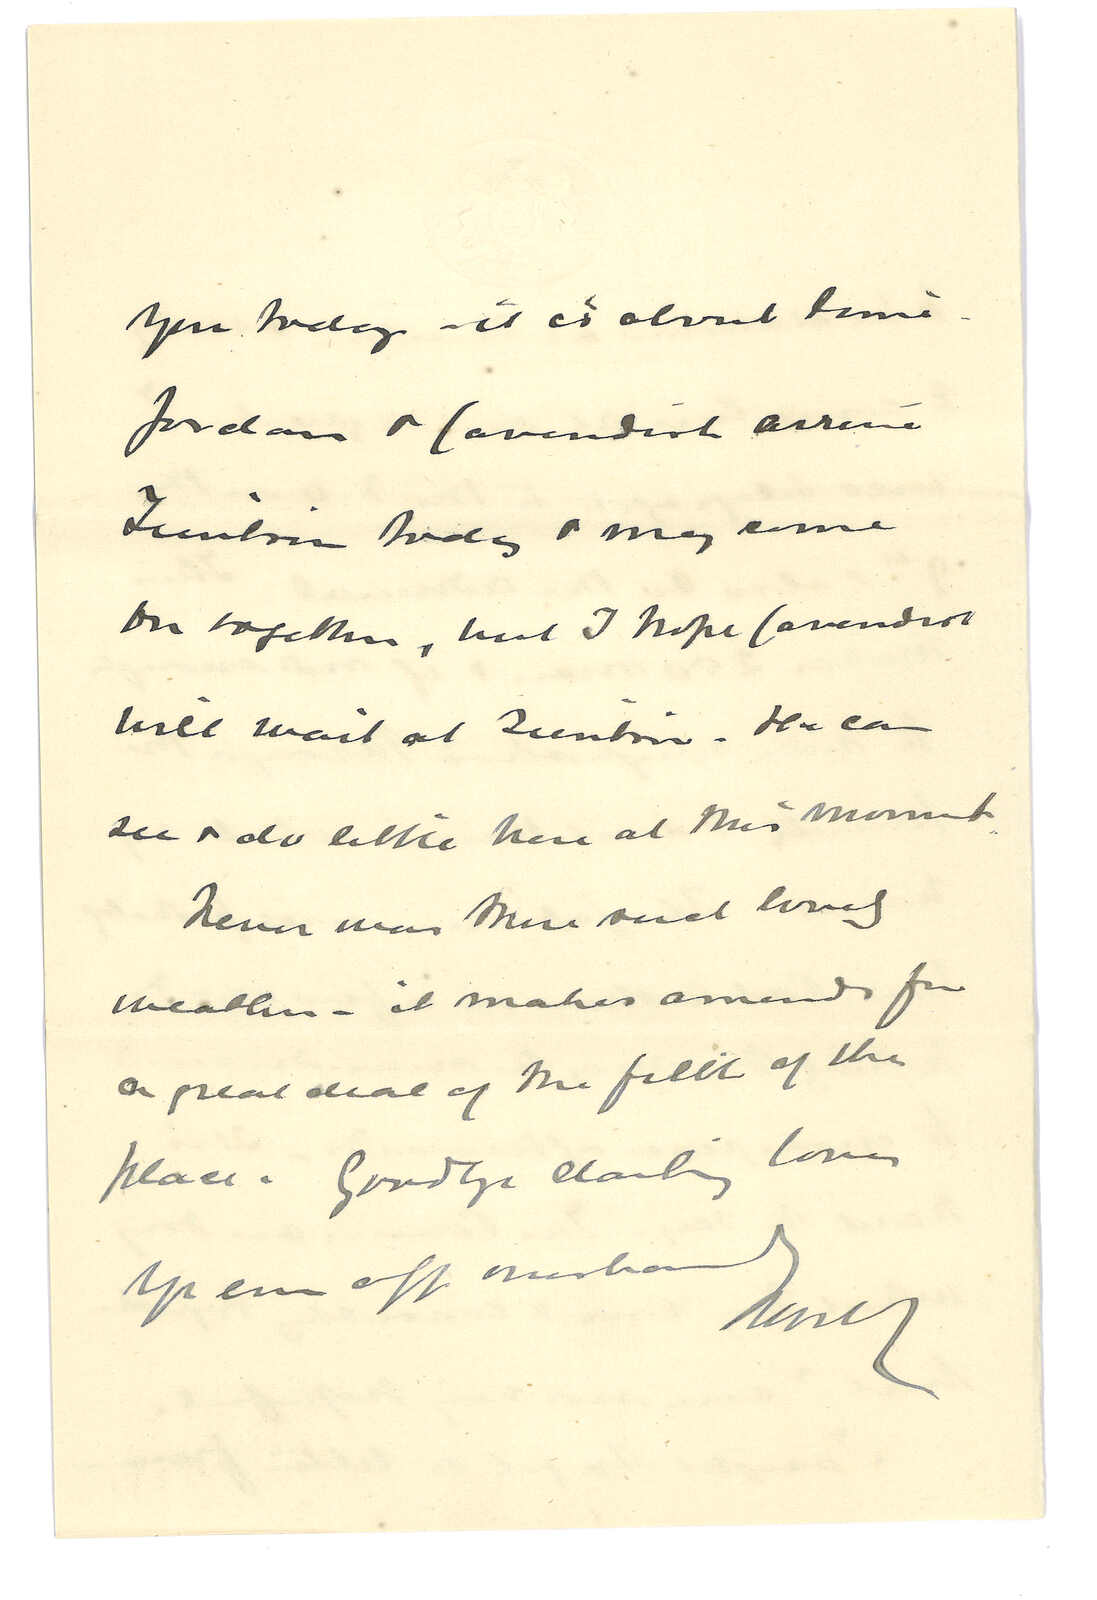 you today - it is about time -
Jordan & Cavendish arrive
Zunilrin today & may come
on together, but I hope Cavendish
will wait at . He can
see & do little here at this moment.
Never was there such lovely
weather - it makes amends for
a great deal of the filth of the
place. Goodbye darling love
Yr ever aff husband